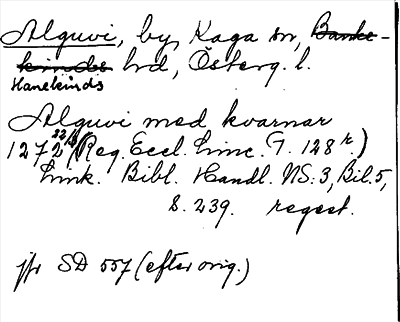 Alguvi, by, Kaga sn, Banke-
kinds hd, Österg. l.
Hanekinds
Alguvi med kvarnar
1272 22/3 (Reg. Eccl. Linc. G. 128 r.)
Link. Bibl. Handl. NS: 3, Bil. 5,
S. 239. regest.
jfr SD 557 (efter orig.)